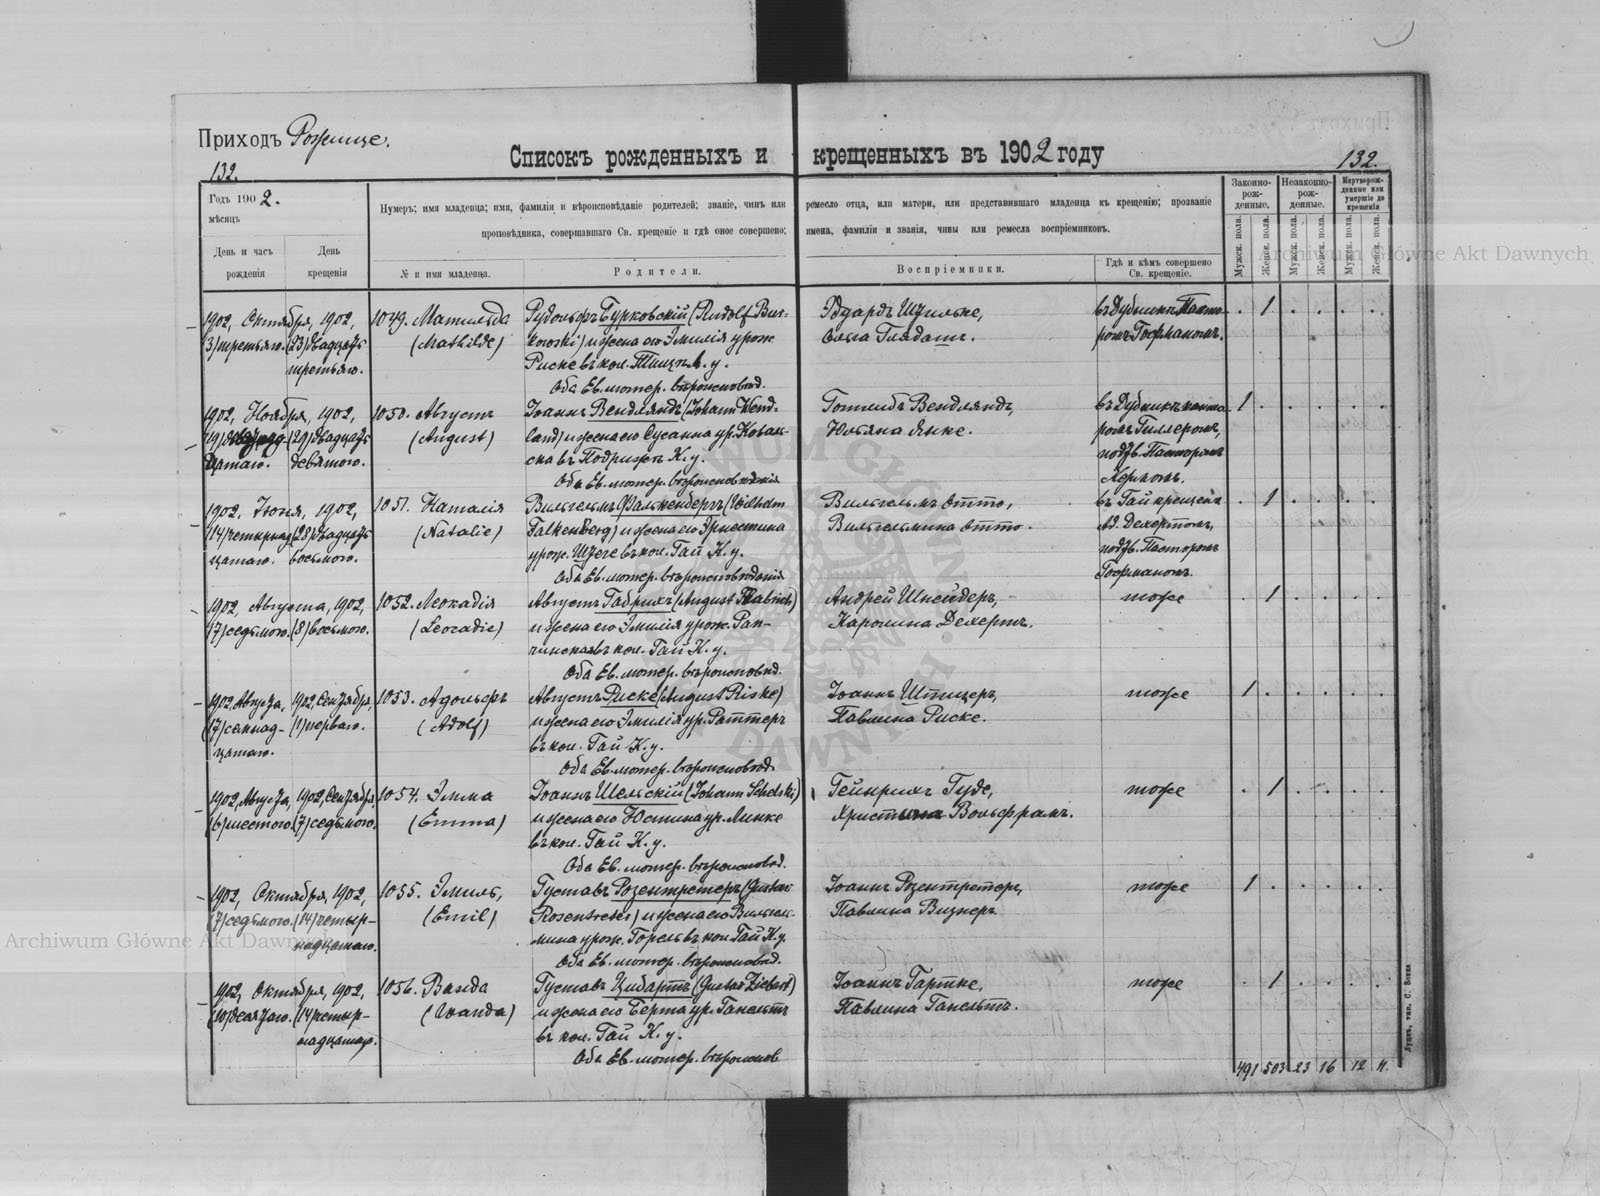 Приходъ Рожище.
132.
Списокъ рожденныхъ и крещенныхъ въ 1902 году
132.
Годъ 1902.
мѣсяцъ
День и часъ рожденія
День крещенія
Нумеръ; имя младенца; имя, фамилія и вѣроисповѣданіе родителей; званіе, чинъ или ремесло отца, или матери, или представившаго младенца къ крещенію; прозваніе
проповѣдника, совершавшаго Св. крещеніе и гдѣ оное совершено; имена, фамиліи и званія, чины или ремесла воспріемниковъ.
№ и имя младенца.
Родители.
Воспріемники.
Гдѣ и кѣмъ совершено Св. крещеніе.
Законно-рож-денные.
Незаконно-рож-денные.
Мертворож-денные или умершіе до крещенія
Мужск. пола.
Женск. пола.
Мужск. пола.
Женск. пола.
Мужск. пола.
Женск. пола.
1902, Октября, 1902,
(3) третьяго. (23) двадцать
третьяго.
1049. Матильда
(Mathilde)
Рудольфъ Бурковскій (Rudolf Bur-
kowski) и жена его Эмилія урож.
Риске въ кол. Л. у.
Оба Ев. лютер. вѣроисповѣд.
Эдуардъ
Ольга
въ Дубникѣ Пасто-
ромъ Гофманомъ.
. 1 . . . .
1902, Ноября, 1902,
(19) девятнад- (29) двадцать
цатаго. девятаго.
1050. Августъ
(August)
Іоаннъ Вендляндъ (Johann Wend-
land) и жена его Сусанна ур. Коваль-
ска въ К. у.
Оба Ев. лютер. вѣроисповѣданія
Готлибъ Вендляндъ,
Юльяна Янке.
въ Дубникѣ канто-
ромъ Гиллеромъ,
подтв. Пасторомъ
1 . . . . .
1902, Іюня, 1902,
(14) четырнад- (28) двадцать
цатаго. восьмого.
1051. Наталія
(Natalie)
Вильгельмъ Фалькенбергъ (Wilhelm
Falkenberg) и жена его Эрнестина
урож. въ кол. Гай К. у.
Оба Ев. лютер. вѣроисповѣданія
Вильгельмъ Отто,
Вильгельмина Отто.
въ Гай крещена
Ад. Дехертомъ,
подтв. Пасторомъ
Гофманомъ.
. 1 . . . .
1902, Августа, 1902,
(7) седьмого. (8) восьмого.
1052. Леокадія
(Leocadie)
Августъ Габрихъ (August Habrich)
и жена его Эмилія урож. Рап-
чинская въ кол. Гай К. у.
Оба Ев. лютер. вѣроисповѣд.
Андрей Шнейдеръ,
Каролина Дехертъ.
тоже
. 1 . . . .
1902, Августа, 1902, Сентября,
(17) семнад- (1) перваго.
цатаго.
1053. Адольфъ
(Adolf)
Августъ Риске (August Riske)
и жена его Эмилія ур. Раттеръ
въ кол. Гай К. у.
Оба Ев. лютер. вѣроисповѣд.
Іоаннъ Штицеръ,
Павлина Риске.
тоже
1 . . . . .
1902, Августа, 1902, Сентября,
(6) шестого. (7) седьмого.
1054. Эмма
(Emma)
Іоаннъ Шельскій (Johann Schelski)
и жена его Юстина ур. Линке
въ кол. Гай К. у.
Оба Ев. лютер. вѣроисповѣд.
Гейнрихъ Гуде,
Христина Вольфрамъ.
тоже
. 1 . . . .
1902, Октября, 1902,
(7) седьмого. (14) четыр-
надцатаго.
1055. Эмиль,
(Emil)
Густавъ Розентретеръ (Gustav
Rosentreter) и жена его Вильгель-
мина урож. Горель въ кол. Гай К. у.
Оба Ев. лютер. вѣроисповѣд.
Іоаннъ Розентретеръ,
Павлина Визнеръ.
тоже
1 . . . . .
1902, Октября, 1902,
(10) десятаго. (14) четыр-
надцатаго.
1056. Ванда
(Wanda)
Густавъ Цибартъ (Gustav Ziebart)
и жена его Берта ур. Гапельтъ
въ кол. Гай К. у.
Оба Ев. лютер. вѣроисповѣд
Іоаннъ Гартке,
Павлина Гапельтъ.
тоже
. 1 . . . .
491 503 23 16 12 11.
Луцкъ, тип. С. Бонка
Archiwum Główne Akt Dawnych
Archiwum Główne Akt Dawnych